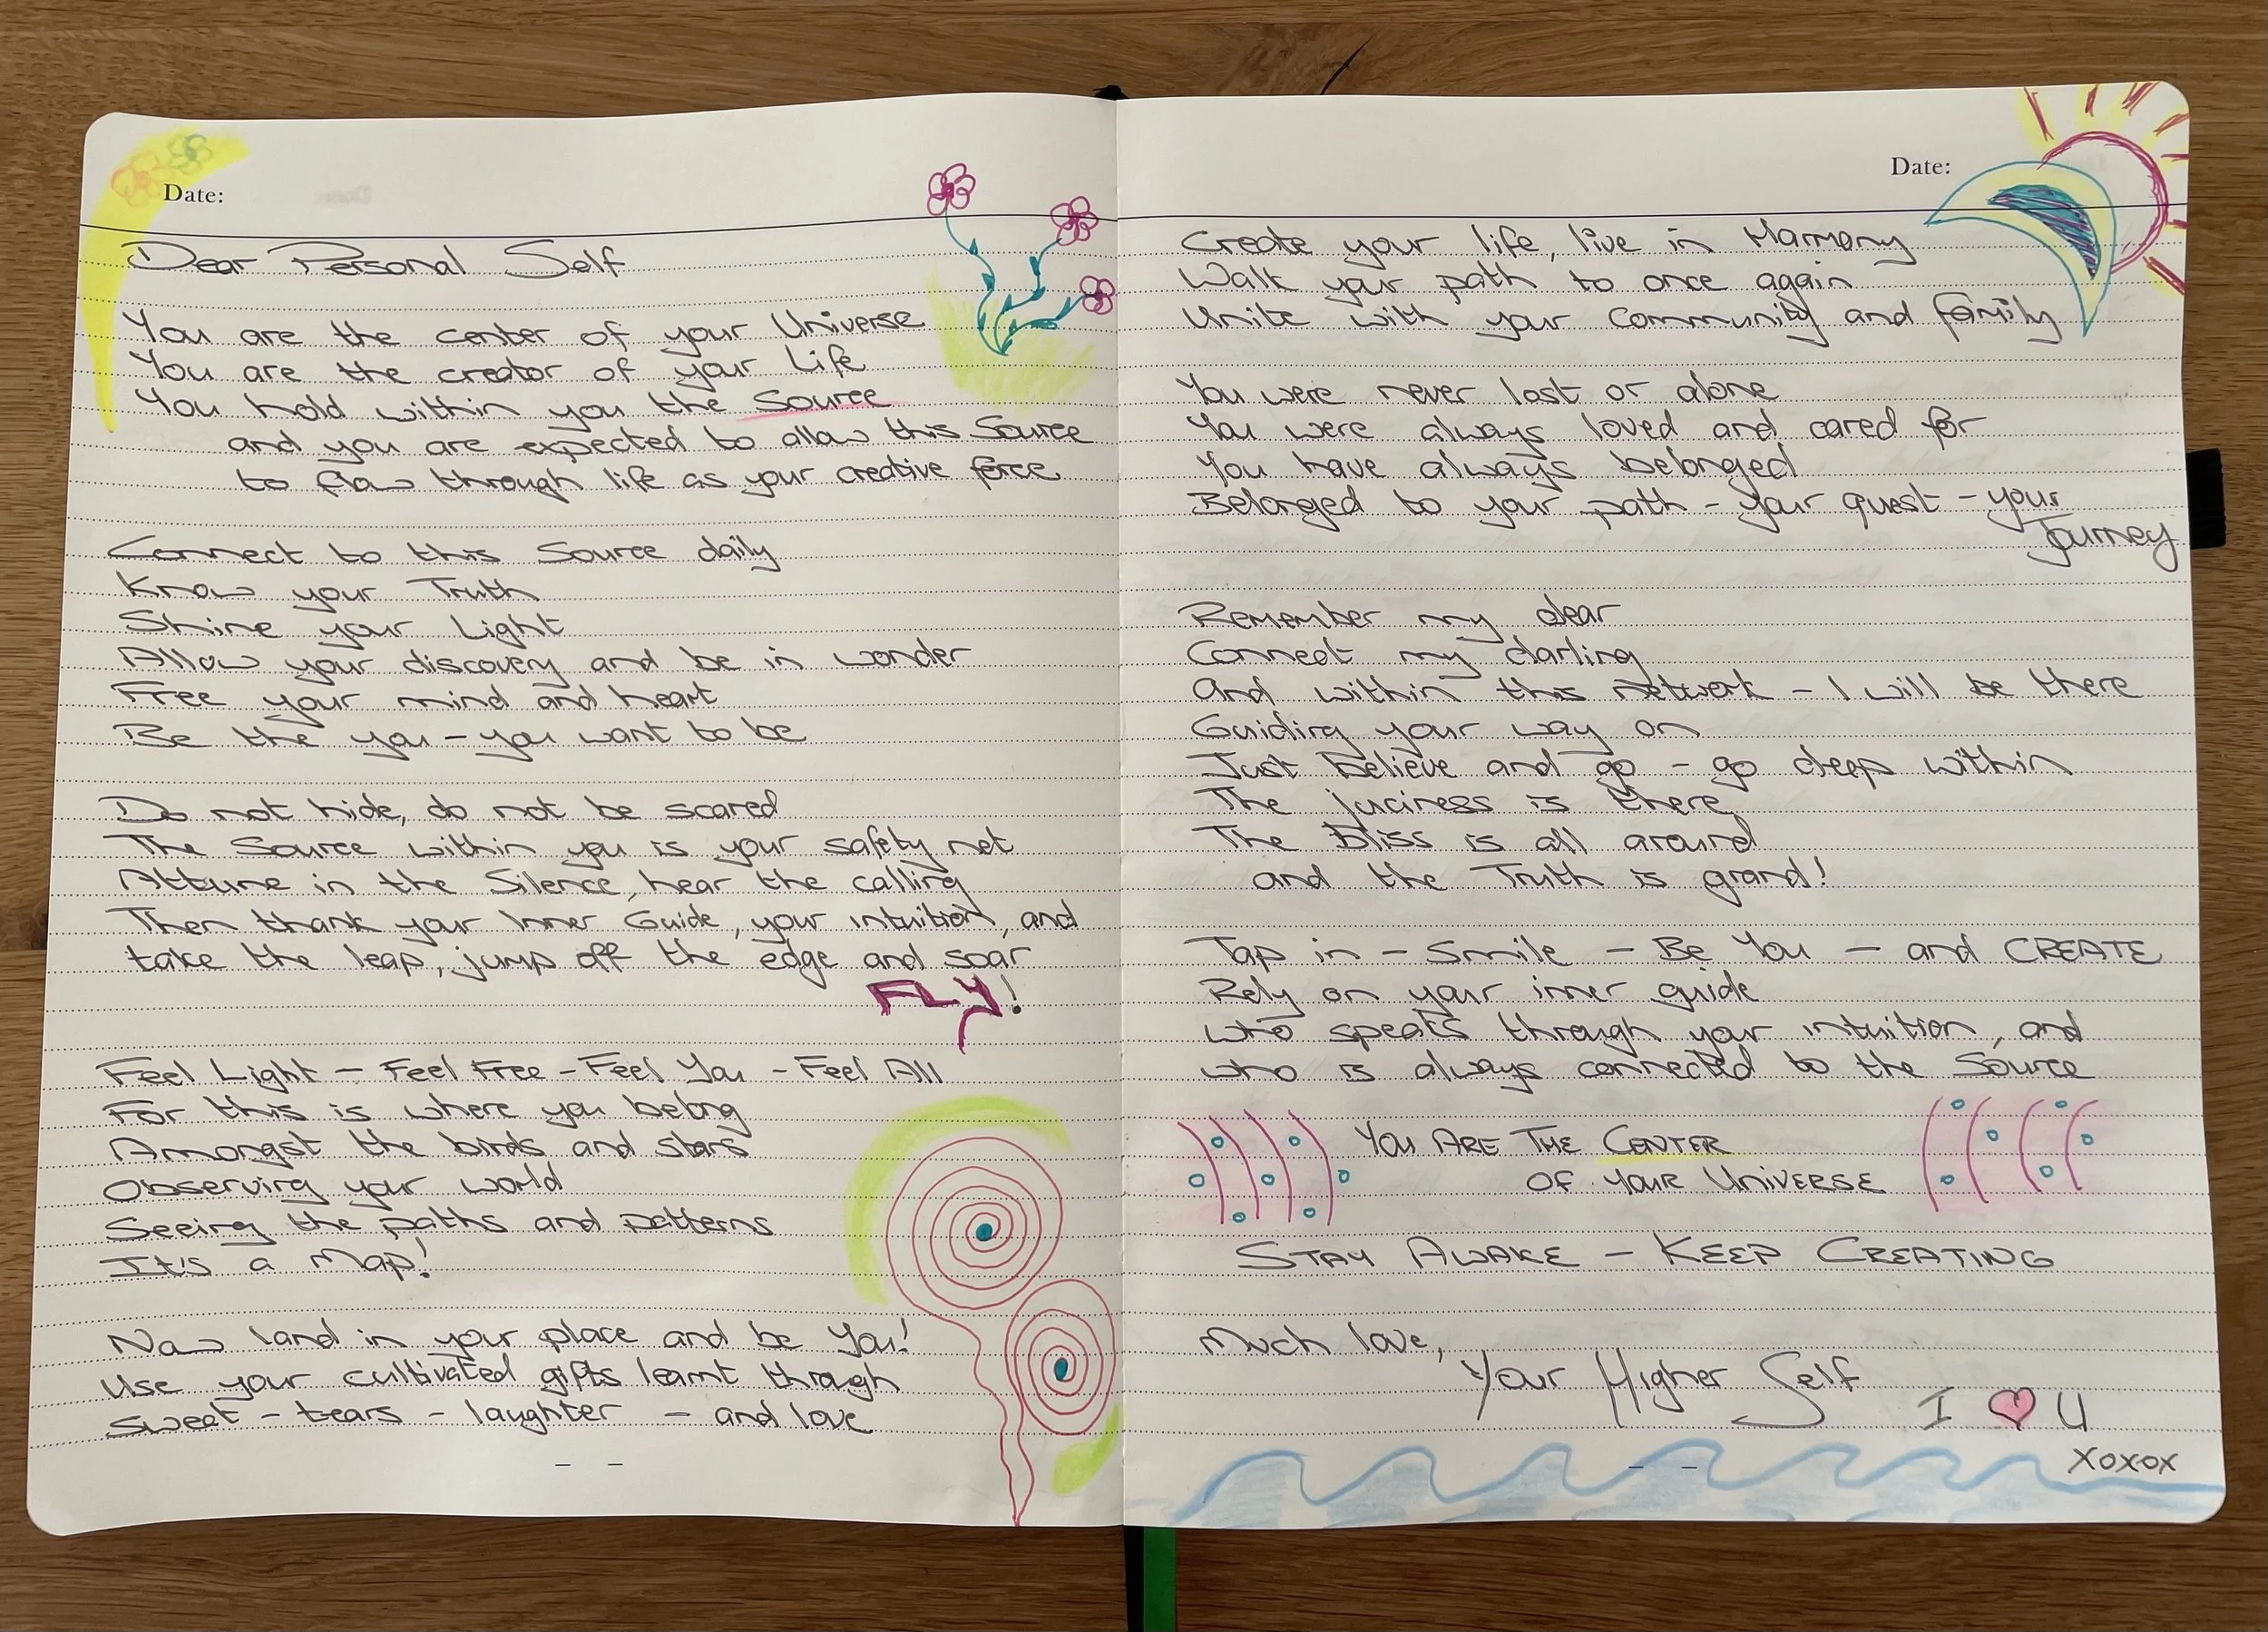 Date:
Dear Personal Self
You are the center of your Universe
You are the creator of your Life
You hold within you the Source
and you are expected to allow this Source
to flow through life as your creative force
Connect to this Source daily
Know your Truth
Shine your Light
Allow your discovery and be in wonder
Free your mind and heart
Be the you - you want to be
Do not hide, do not be scared
The Source within you is your safety net
Attune in the Silence, hear the calling
Then thank your Inner Guide, your intuition, and
take the leap, jump off the edge and soar
FLY!
Feel Light - Feel Free - Feel You - Feel All
For this is where you belong
Amongst the birds and stars
Observing your world
Seeing the paths and patterns
It's a Map!
Now land in your place and be You!
Use your cultivated gifts learnt through
sweat - tears - laughter - and love
Date:
Create your life, live in Harmony
Walk your path to once again
Unite with your Community and family
You were never lost or alone
You were always loved and cared for
You have always belonged
Belonged to your path - your quest - your
Journey
Remember my dear
Connect my darling
and within this network - I will be there
Guiding your way on
Just Believe and go - go deep within
The juciness is there
The Bliss is all around
and the Truth is grand!
Tap in - Smile - Be You - and CREATE
Rely on your inner guide
who speaks through your intuition, and
who is always connected to the Source
YOU ARE THE CENTER
OF YOUR UNIVERSE
STAY AWAKE - KEEP CREATING
Much love,
Your Higher Self
I ♥ U
xoxox